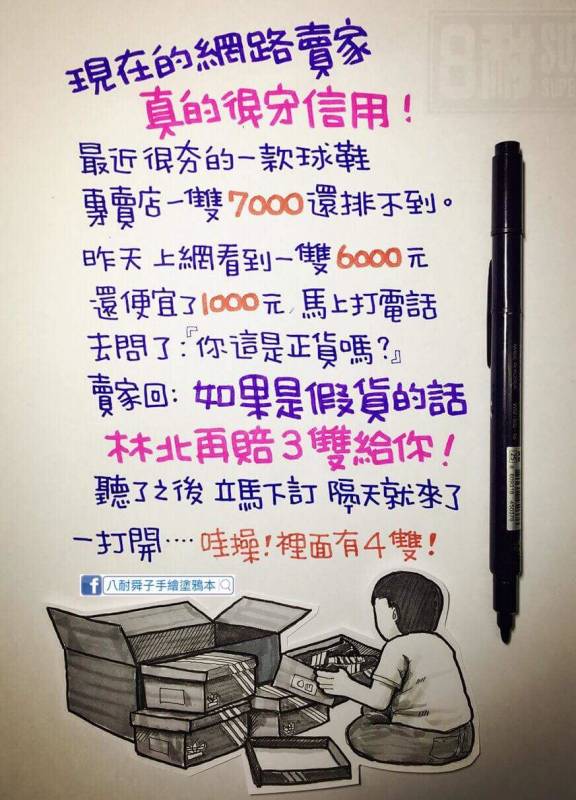 現在的網路賣家
真的很守信用！
最近很夯的一款球鞋
專賣店一雙7000還排不到。
昨天上網看到一雙6000元
還便宜了1000元,馬上打電話
去問了:『你這是正貨嗎?』
賣家回:如果是假貨的話
林北再賠3雙給你！
聽了之後 立馬下訂 隔天就來了
一打開‥‥哇操!裡面有4雙!
f 八耐舜子手繪塗鴉本